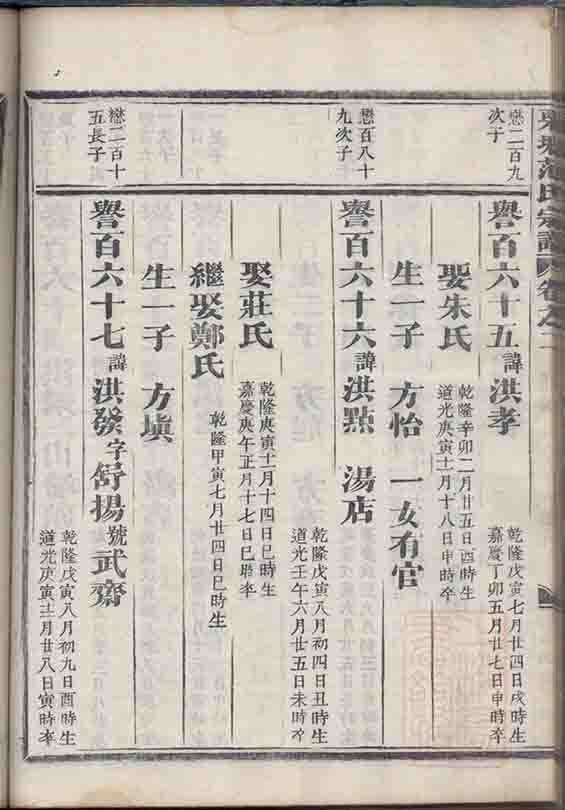 范氏宗譜 卷之二
懋二百九
次子
譽百六十五 諱洪孝
乾隆戊寅七月廿四日戌時生
嘉慶丁卯五月廿七日申時卒
娶朱氏
乾隆辛卯二月廿五日酉時生
道光庚寅十一月十八日申時卒
生一子 方怡 一女有官
懋百八十
九次子
譽百六十六 諱洪點 湯店
乾隆戊寅八月初四日丑時生
道光壬午六月廿五日未時卒
娶莊氏
乾隆庚寅十一月十四日巳時生
嘉慶庚午正月十七日巳時卒
繼娶鄭氏
乾隆甲寅七月廿四日巳時生
生一子 方塡
懋二百十
五長子
譽百六十七 諱洪發 字舒揚 號武齋
乾隆戊寅八月初九日酉時生
道光庚寅十二月廿八日寅時卒